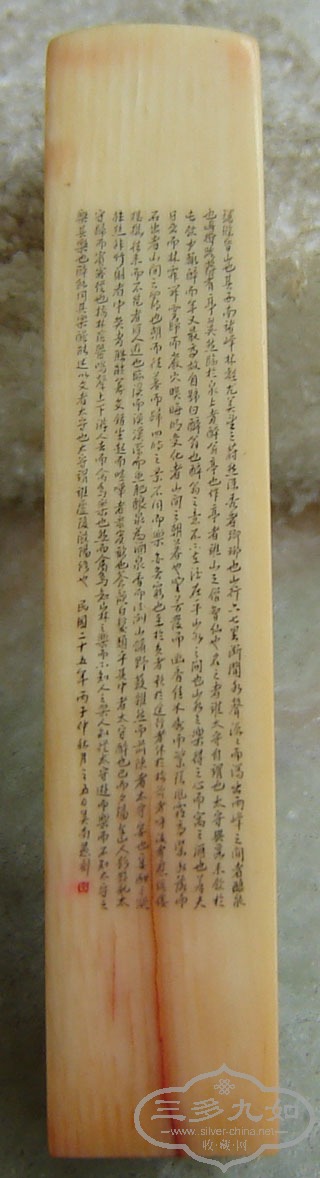 環滁皆山也其西南諸峰林壑尤美望之蔚然深秀者瑯琊也山行六七里漸聞水聲潺潺而瀉出兩峰之間者釀泉
也峰回路轉有亭翼然臨於泉上者醉翁亭也作亭者誰山之僧智仙也名之者誰太守自謂也太守與客來飲於
此飲少輒醉而年又最高故自號曰醉翁也醉翁之意不在酒在乎山水之間也山水之樂得之心而寓之酒也若夫
日出而林霏開雲歸而巖穴暝晦明變化者山間之朝暮也野芳發而幽香佳木秀而繁陰風霜高潔水落而
石出者山間之四時也朝而往暮而歸四時之景不同而樂亦無窮也至於負者歌於途行者休於樹前者呼後者應傴僂
提攜往來而不絕者滁人遊也臨溪而漁溪深而魚肥釀泉為酒泉香而酒冽山肴野蔌雜然而前陳者太守宴也宴酣之樂
非絲非竹射者中弈者勝觥籌交錯坐起而喧嘩者眾賓歡也蒼顏白髮頹乎其中者太守醉也已而夕陽在山人影散亂太
守歸而賓客從也樹林陰翳鳴聲上下遊人去而禽鳥樂也然而禽鳥知山林之樂而不知人之樂人知從太守遊而樂而不知太守之
樂其樂也醉能同其樂醒能述以文者太守也太守謂誰廬陵歐陽修也 民國二十五年丙子仲秋月之五日吳南愚刻
三多九如
www.silver-china.net
收·藏·网